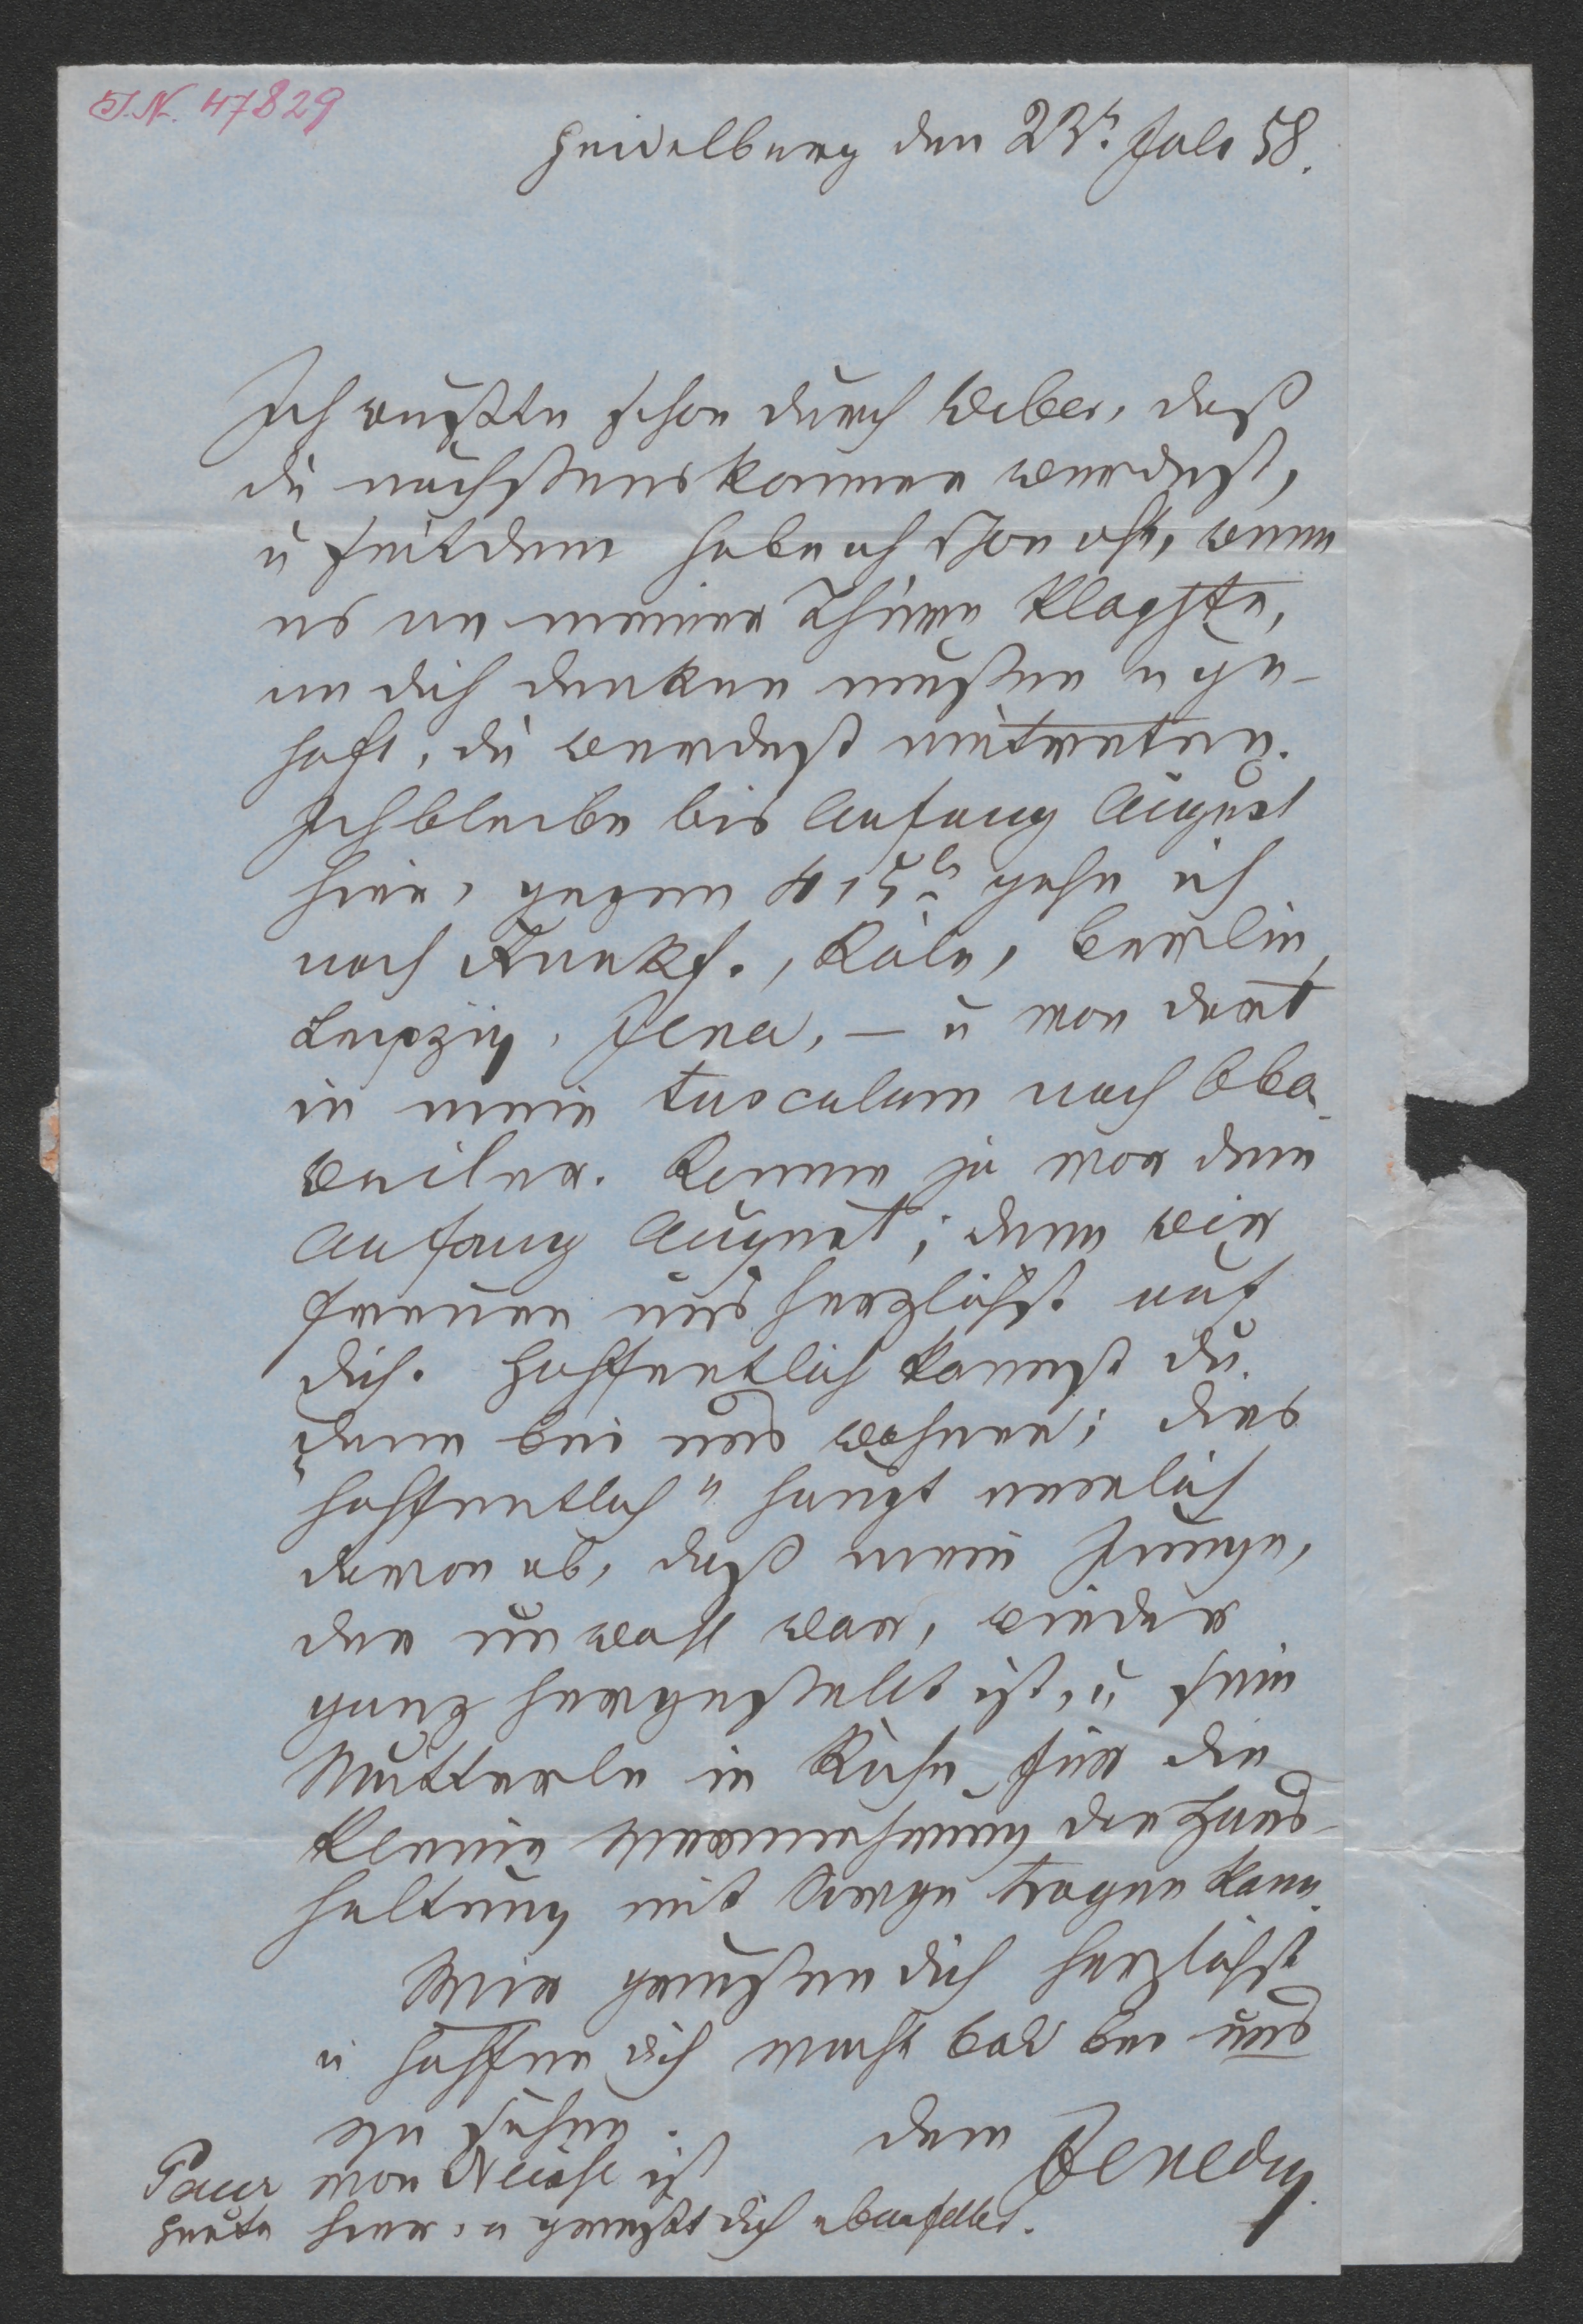 I.N. 47829
Heidelberg den 23t. Juli 58.
Ich wußte schon durch Weber, daß
du nächstens kommen werdest,
u seitdem habe ich schon oft, wenn
es an meiner Thüre klopfte,
an dich denken müßen u ge-
hofft, du werdest eintreten.
Ich bleibe bis Anfang August
hier, gegen 4, 5 gehe ich
nach Frankf., Köln, Berlin,
Leipzig, Jena, — u von dort
in mein Tusculum nach Ober-
weiler. Komme ja vor dem
Anfang August; denn wir
freuen uns herzlichst auf
dich. Hoffentlich kannst du
dann bei uns wohnen; dies
"hoffentlich" hängt nemlich
davon ab, daß mein Junge,
der unwohl war, wieder
ganz hergestellt ist, u sein
Mütterle in Ruhe für die
kleine Vermehrung der Haus-
haltung mit Sorge tragen kann.
Wir grüßen dich herzlichst
u hoffen dich recht bald bei uns
zu sehen. dein Venedey
Paur von Neiße ist
heute hier, u grüßt dich ebenfalls.